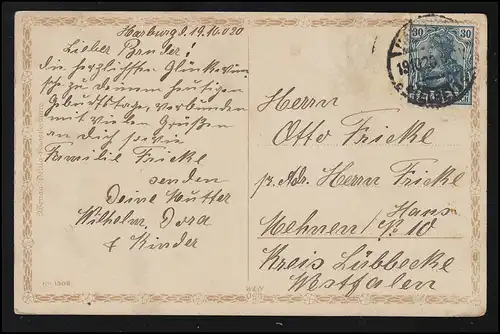 Harburg d. 19.10.020
Lieber Bruder!
die herzlichsten Glückwün
sche zu deinem heutigen
Geburtstage, verbunden
mit vielen Grüßen
an dich sowie
Familie Fricke
senden
Deine Mutter
Wilhelm, Dora
& Kinder
30 30
19.10.20
Herrn
Otto Fricke
p. Adr. Herrn Fricke
Haus
Mehnen No 10
Kreis Lübbecke
Westfalen